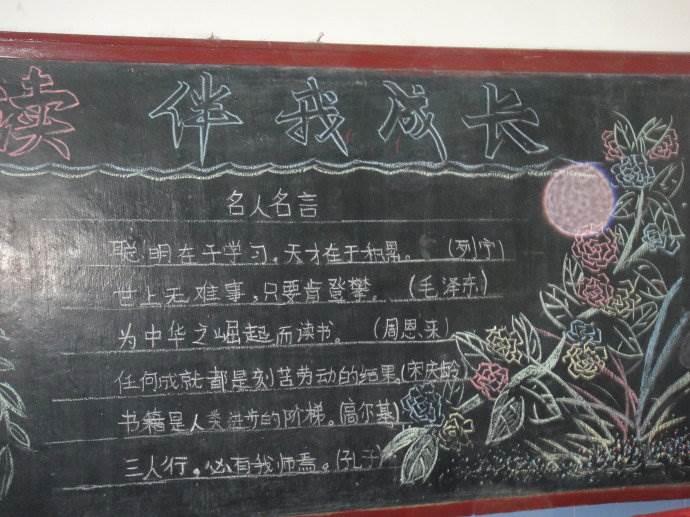 读 伴我成长
名人名言
聪明在于学习。天才在于积累。(列宁)
世上无难事,只要肯登攀。(毛泽东)
为中华之崛起而读书。(周恩来)
任何成就都是刻苦劳动的结果。(宋庆龄
书籍是人类进步的阶梯。(高尔基)
三人行。必有我师焉。(孔子)